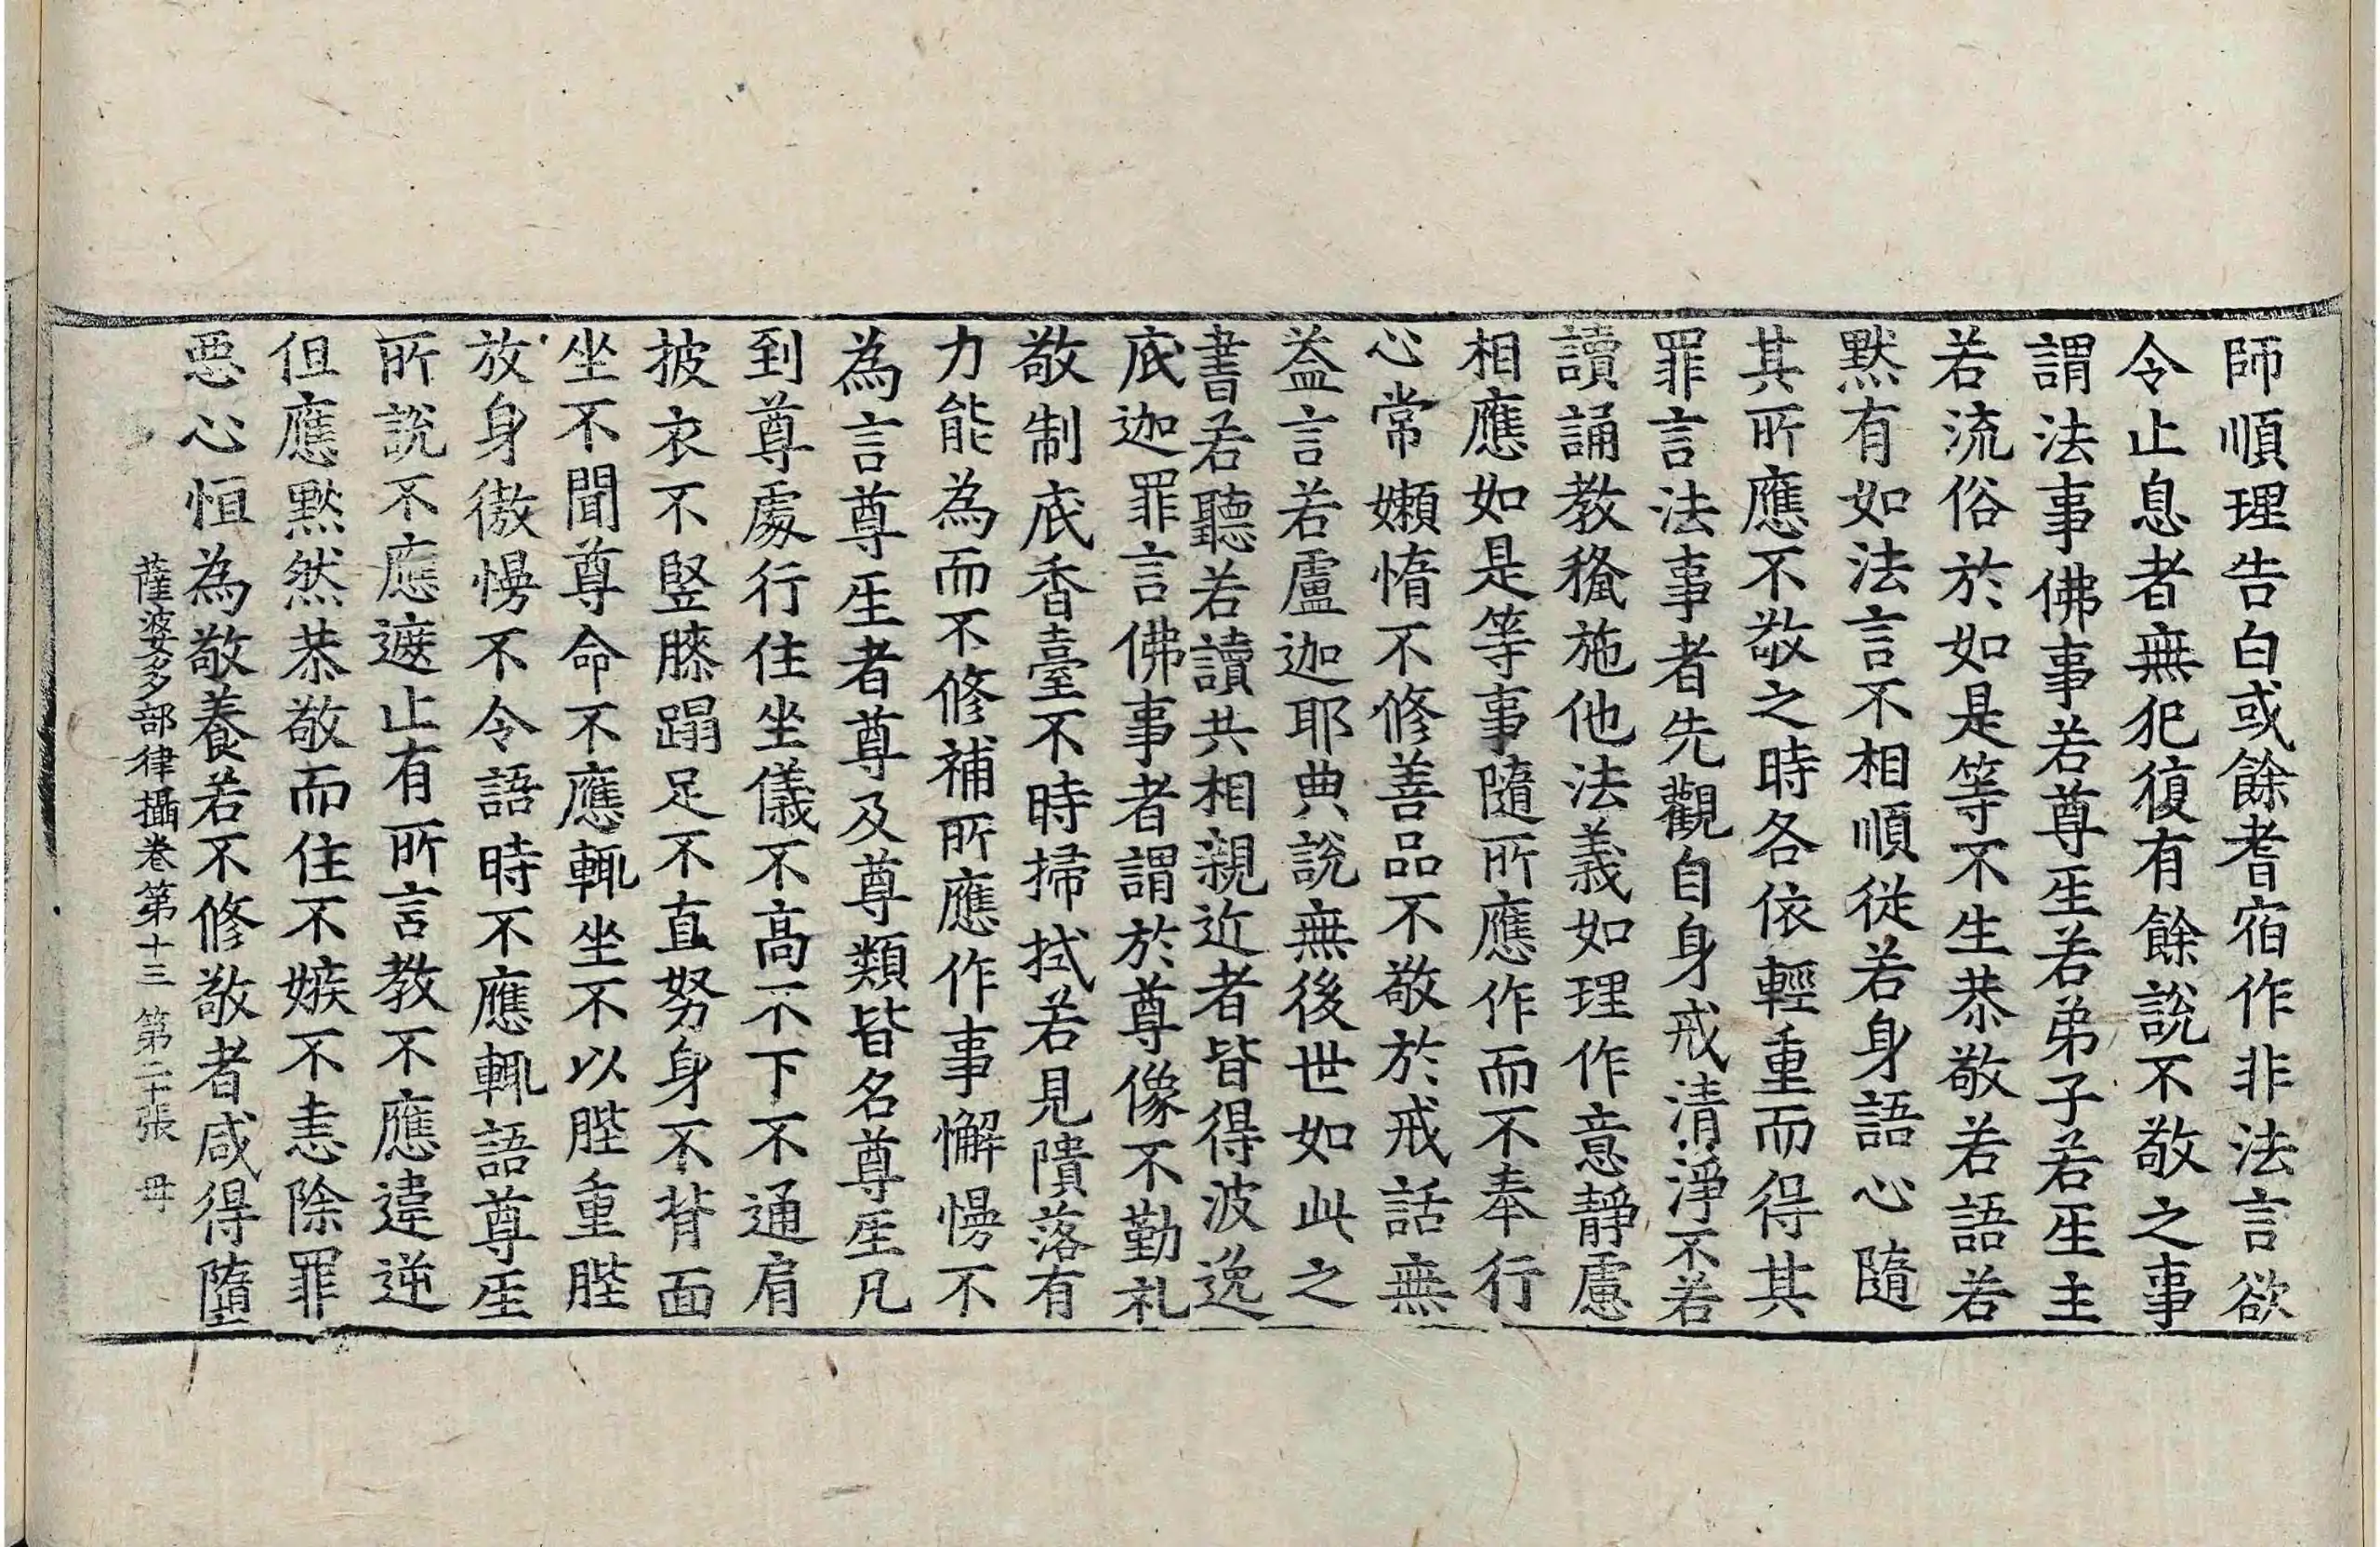 師順理告白或餘耆宿作非法言欲
令止息者無犯復有餘說不敬之事
謂法事佛事若尊𤯔若弟子若𤯔主
若流俗於如是等不生恭敬若語若
黙有如法言不相順從若身語心隨
其所應不敬之時各依輕重而得其
罪言法事者先觀自身戒清淨不若
讀誦教𥡴施他法義如理作意靜慮
相應如是等事隨所應作而不奉行
心常嬾惰不修善品不敬於戒話無
益言若盧迦耶典說無後世如此之
書若聽若讀共相親近者皆得波逸
底迦罪言佛事者謂於尊像不勤礼
敬制底香臺不時掃拭若見隤落有
力能為而不修補所應作事懈慢不
為言尊𤯔者尊及尊類皆名尊𤯔凡
到尊處行住坐儀不高不下不通肩
披衣不竪膝蹋足不直努身不背面
坐不聞尊命不應輒坐不以䏶重䏶
放身傲慢不令語時不應輒語尊𤯔
所說不應遮止有所言教不應違逆
但應黙然恭敬而住不嫉不恚除罪
惡心恒為敬養若不修敬者咸得墮
薩婆多部律攝卷第十三 第二十張 毋